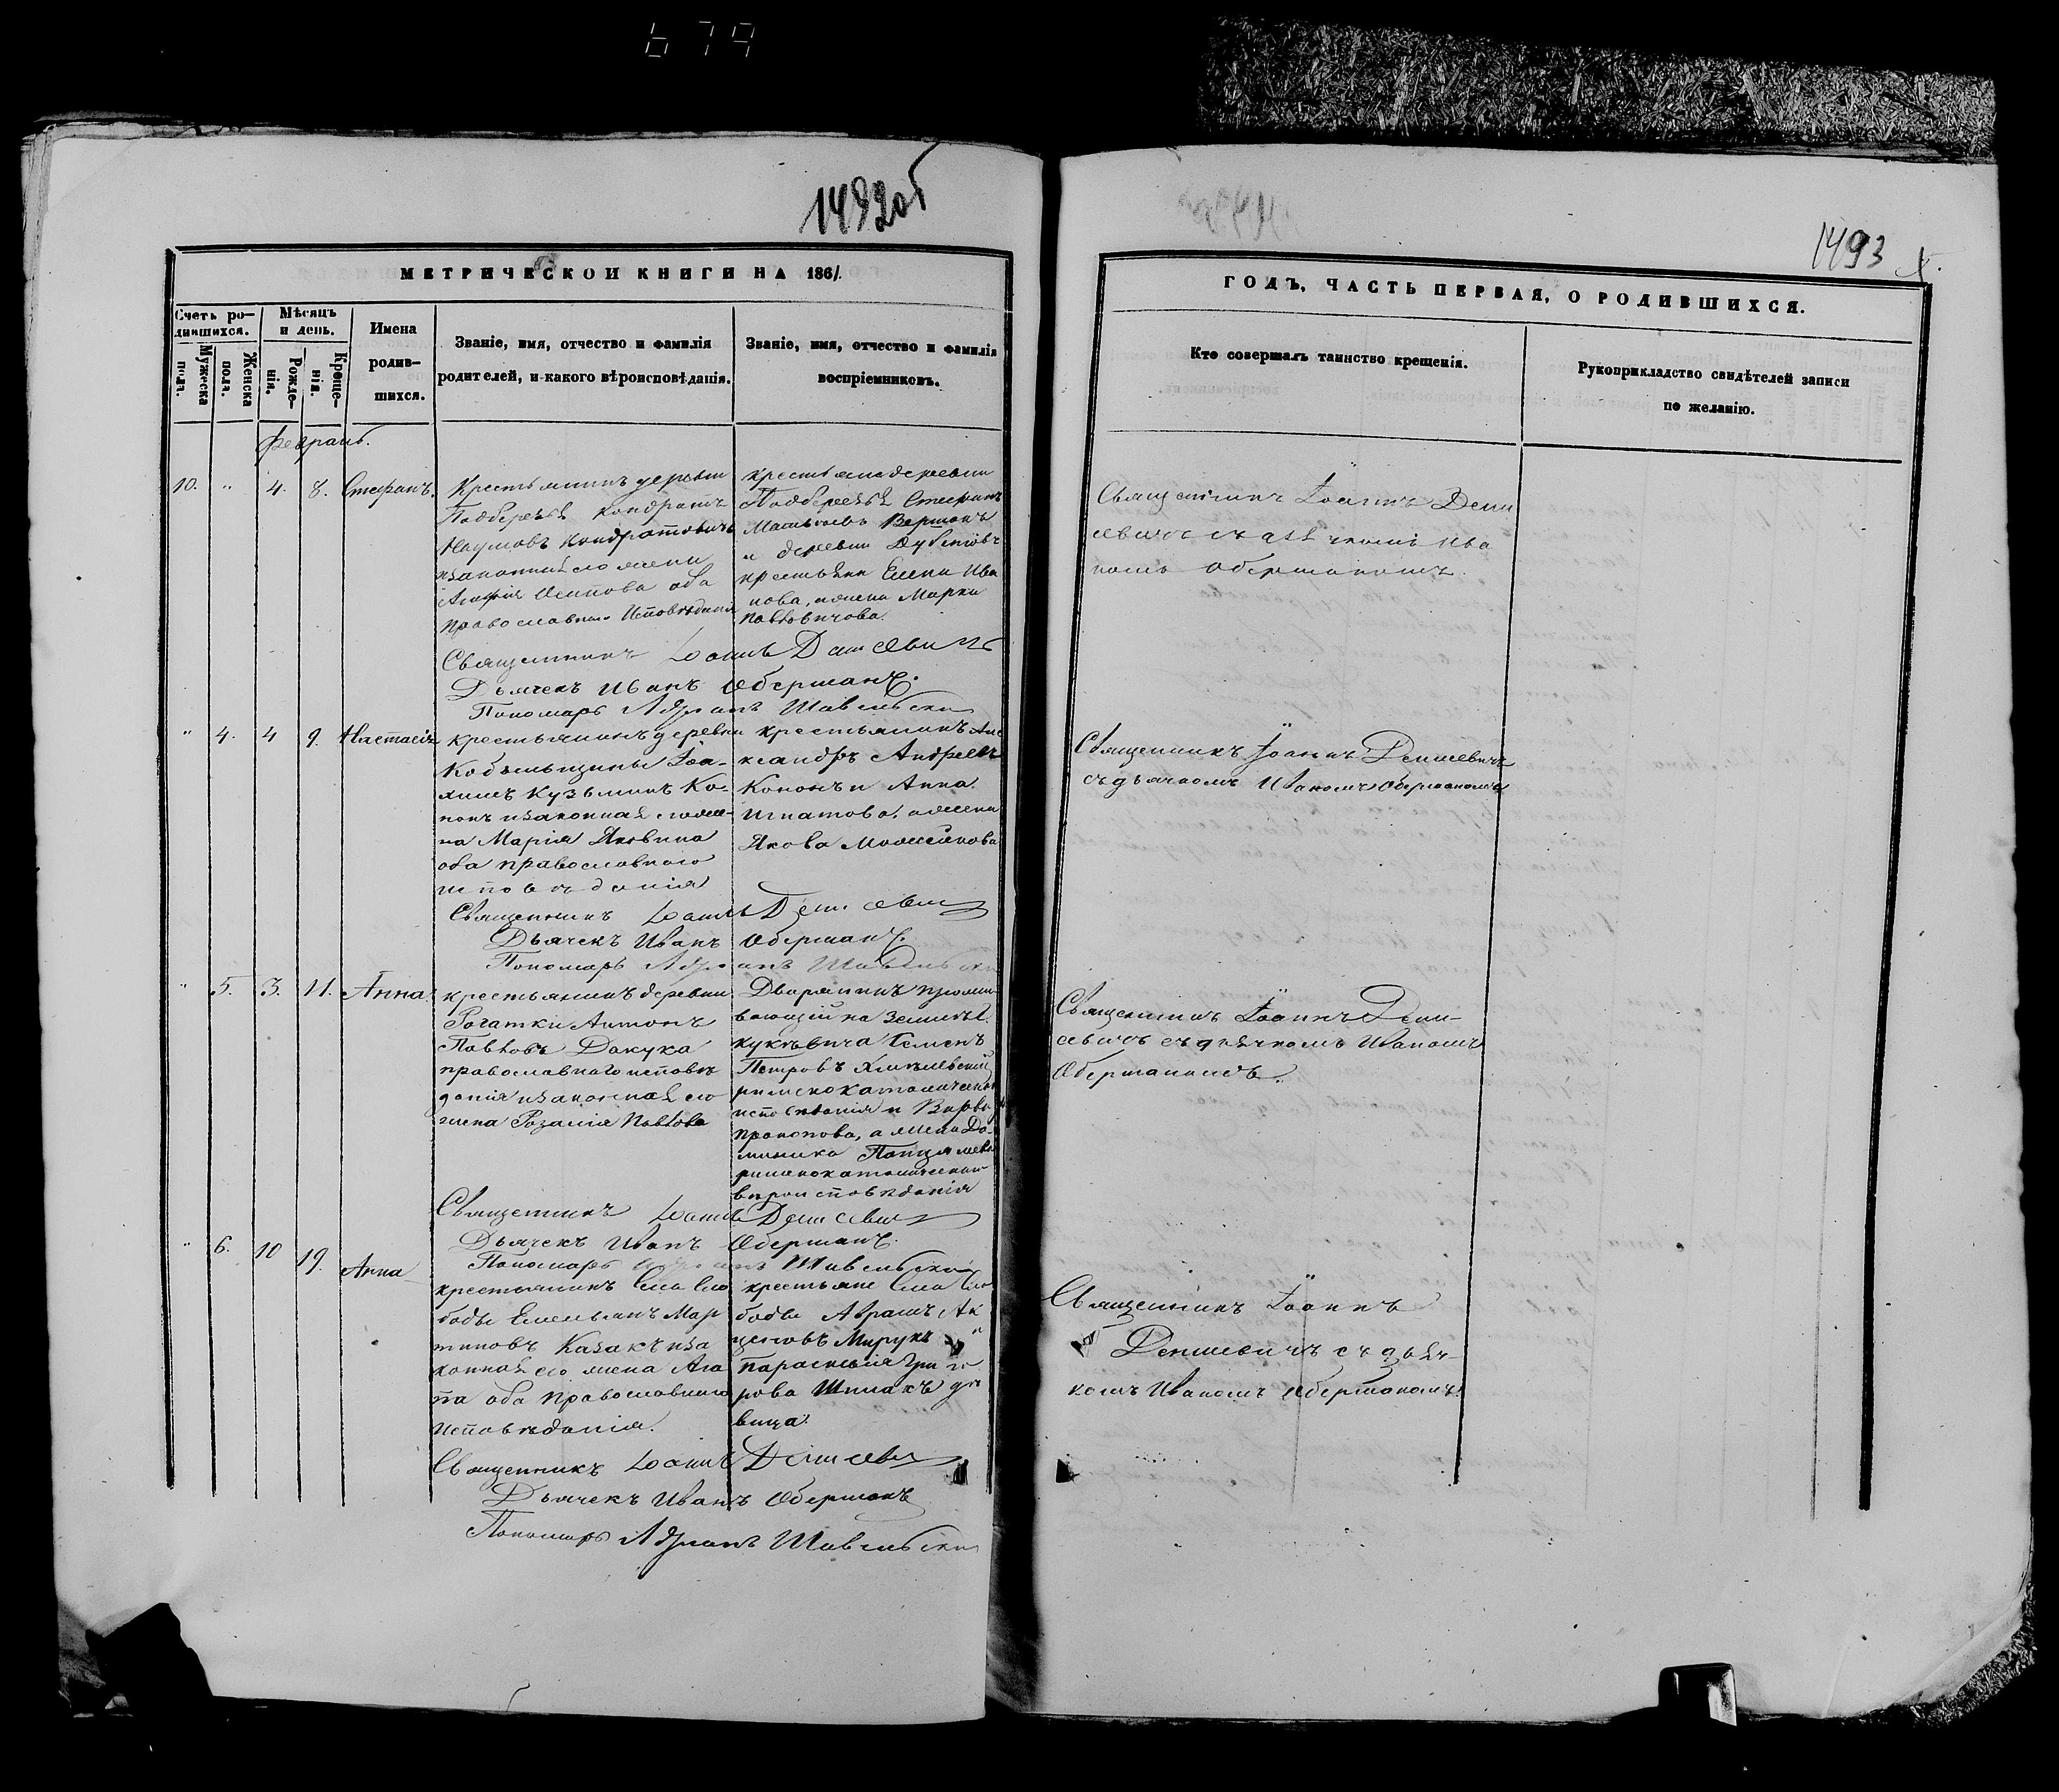 679
1492об
МЕТРИЧЕСКОЙ КНИГИ НА 1861.
Счетъ ро-
дившихся.
Мѣсяцъ
и день.
Имена
родив-
шихся.
Званіе, имя, отчество и фамилія
родителей, и какого вѣроисповѣданія.
Званіе, имя, отчество и фамилія
воспріемниковъ.
Мужеска
пола.
Женска
пола.
Рожде-
нія.
Креще-
нія.
Февраль.
10. " 4. 8. Стефанъ.
Крестьянинъ деревни
Кондратъ
Наумовъ Кондратовичъ
и законная его жена
Агафія Осипова оба
православнаго Исповѣданія
крестьяне деревни
Стефанъ
и деревни
крестьянки Елена Ива
нова, жена Марка
Священникъ Іоаннъ Денисевичъ
Дьячекъ Иванъ Оберманъ.
Пономарь Адріанъ Шавельскій
" 4. 4 9. Настасія
крестьянинъ деревни
Кобыльщины Іоа-
кимъ Кузьминъ Ко-
нонъ и законная его же-
на Марія
оба православнаго
исповѣданія
крестьянинъ Але
ксандръ Андреевъ
Кононъ и Анна
Игнатова, жена
Якова
Священникъ Іоаннъ Денисевичъ
Дьячекъ Иванъ Оберманъ.
Пономарь Адріанъ Шавельскій
" 5. 3. 11. Анна.
крестьянинъ деревни
Рогатки Антонъ
Павловъ Докука
православнаго исповѣ
данія и законная его
жена Розалія Павлова
Дворянинъ прожи-
вающій на Землѣ
Семенъ
Петровъ
римскокатолическаго
исповѣданія и Варва
Прокопова, а жена До-
миника
римскокатолическаго
вѣроисповѣданія
Священникъ Іоаннъ Денисевичъ
Дьячекъ Иванъ Оберманъ.
Пономарь Адріанъ Шавельскій
" 6. 10 19. Анна
крестьянинъ Села Сло
боды Емельянъ Мар
тиновъ Казакъ и за
конная его жена Ага
та оба Православнаго
Исповѣданія.
крестьяне Села Сло
боды Абрамъ Ак
сентовъ Мирукъ и
Параскевія Григо
рова Шпакъ дѣ
вица.
Священникъ Іоаннъ Денисевичъ
Дьячекъ Иванъ Оберманъ
Пономарь Адріанъ Шавельскій
1493
ГОДЪ, ЧАСТЬ ПЕРВАЯ, О РОДИВШИХСЯ.
Кто совершалъ таинство крещенія.
Рукоприкладство свидѣтелей записи
по желанію.
Священникъ Іоаннъ Дени
севичъ съ дьячкомъ Ива
номъ Оберманомъ.
Священникъ Іоаннъ Денисевичъ
съ дьячкомъ Иваномъ Оберманомъ
Священникъ Іоаннъ Дени-
севичъ съ дьячкомъ Иваномъ
Оберманомъ.
Священникъ Іоаннъ
Денисевичъ съ дьяч-
комъ Иваномъ Оберманомъ.